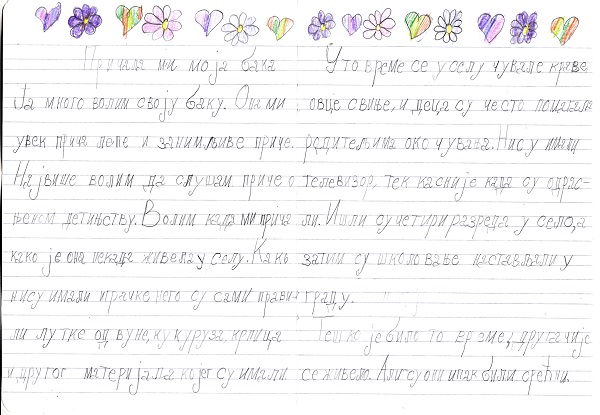 Причала ми моја бака
Ја много волим своју баку. Она ми
увек прича лепе и занимљиве приче.
Највише волим да слушам приче о
њеном детињству. Волим када ми прича
како је она некада живела у селу. Како
нису имали играчке него су сами прави
ли лутке од вуне, кукуруза крпица
и другог материјала којег су имали
У то време се у селу чувале краве
овце свиње, и деца су често помагала
родитељима око чувања. Нису имали
телевизор, тек касније када су одрас-
ли. Ишли су четири разреда у село, а
затим су школовање настављали у
граду.
Тешко је било то време, другачије
се живело. Али су они ипак били срећни.